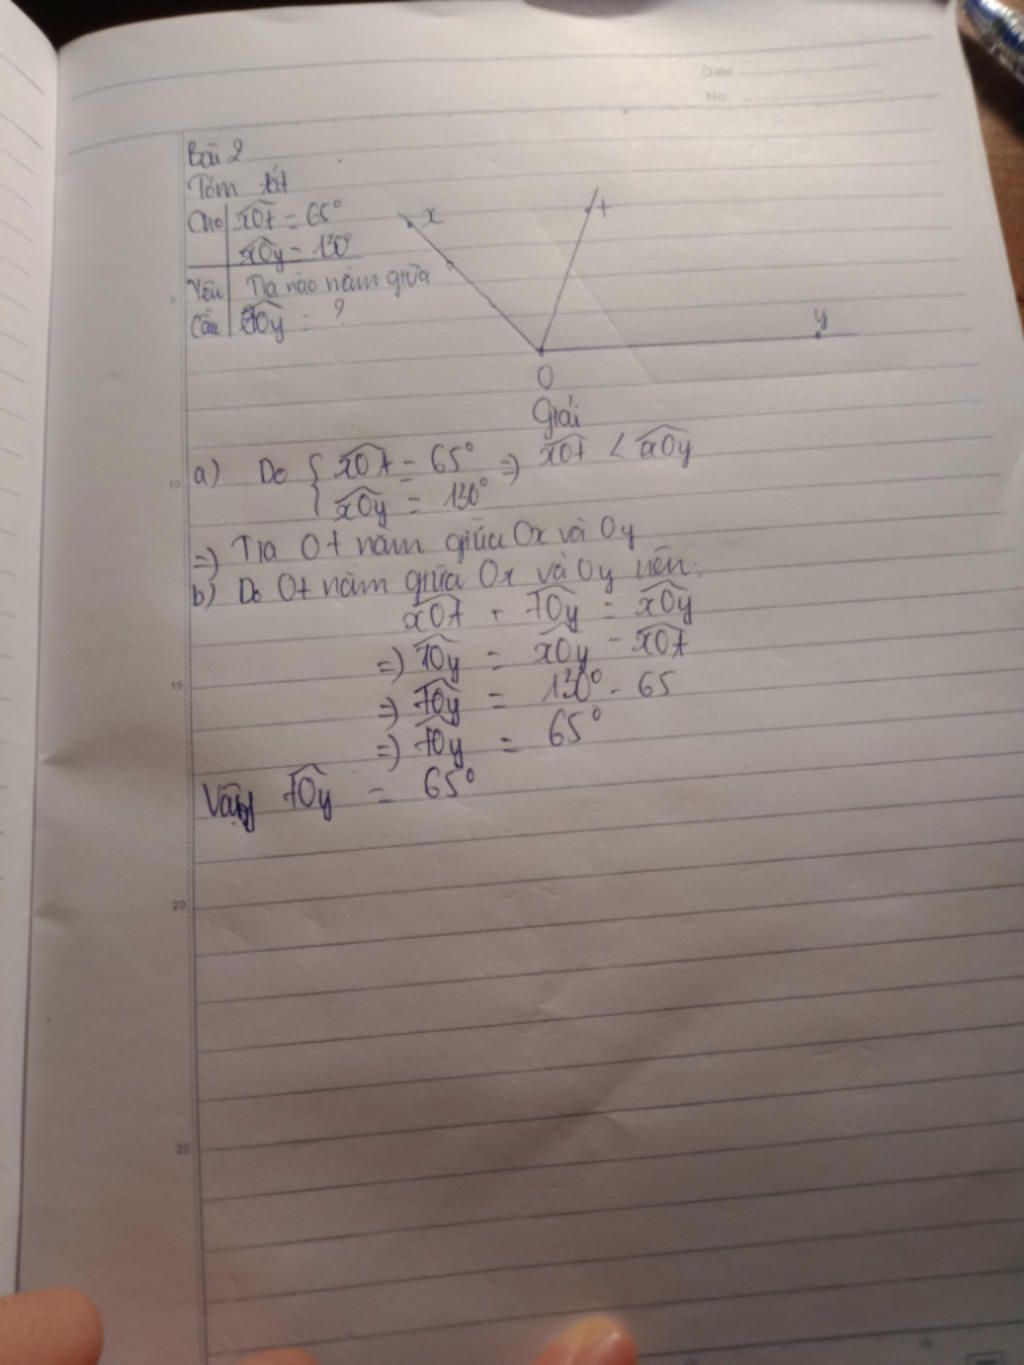 Date:
No:
Bài 2
Tóm tắt
Cho xOt = 65°
xOy = 130°
Yêu Tia nào nằm giữa
Cầu tOy = ?
x
t
y
O
Giải
5
10
a) Do { xOt = 65° => xOt < xOy
xOy = 130°
=> Tia Ot nằm giữa Ox và Oy
b) Do Ot nằm giữa Ox và Oy nên:
xOt + tOy = xOy
=> tOy = xOy - xOt
15
=> tOy = 130° - 65
=> tOy = 65°
Vậy tOy = 65°
20
25